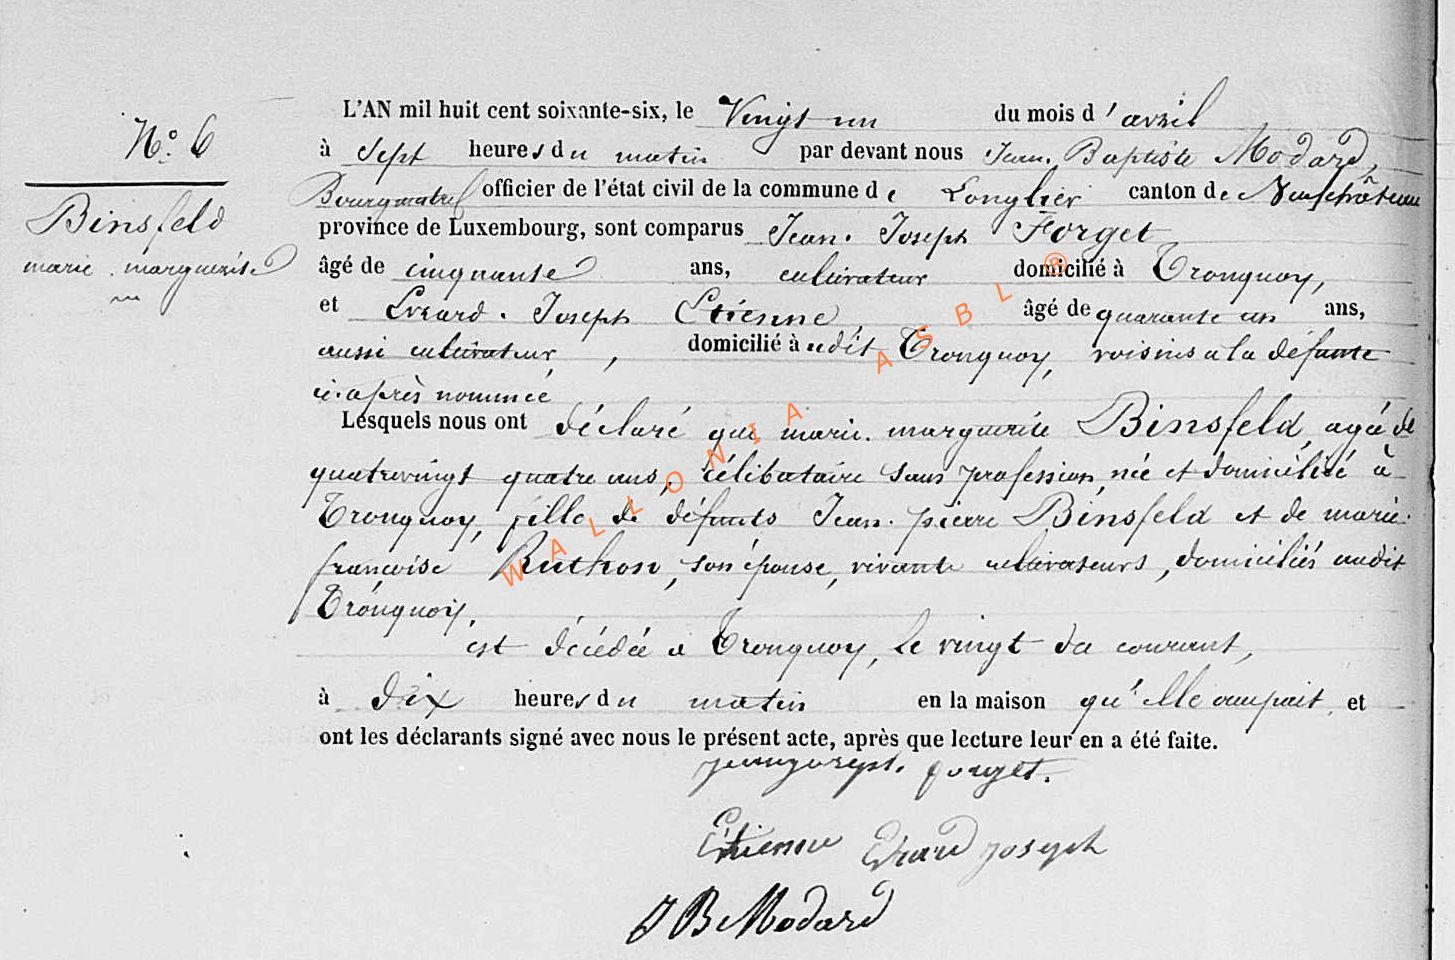 N° 6
Binsfeld
marie. marguerite
L'AN mil huit cent soixante-six, le Vingt un du mois d'avril
à Sept heures du matin par devant nous Jean. Baptiste Modard,
Bourgmestre officier de l'état civil de la commune de Longlier canton de Neufchâteau
province de Luxembourg, sont comparus Jean. Joseph Forget
âgé de cinquante ans, cultivateur domicilié à Tronquoy,
et Evrard. Joseph Etienne âgé de quarante un ans,
aussi cultivateur, domicilié à udit Tronquoy, voisins à la défunte
ci. après nommée
Lesquels nous ont déclaré que marie. marguerite Binsfeld, agée de
quatrevingt quatre ans, célibataire sans profession, née et domiciliée à
Tronquoy, fille de défunts Jean. pierre Binsfeld et de marie.
francoise Ruthon, son épouse, vivants cultivateurs, domiciliés audit
Tronquoy,
est décédée à Tronquoy, le vingt du courant,
à dix heures du matin en la maison qu'elle occupait, et
ont les déclarants signé avec nous le présent acte, après que lecture leur en a été faite.
jeanjoseph. forget.
Etienne Evrard joseph
J B Modard
WALLONIA ASBL ®